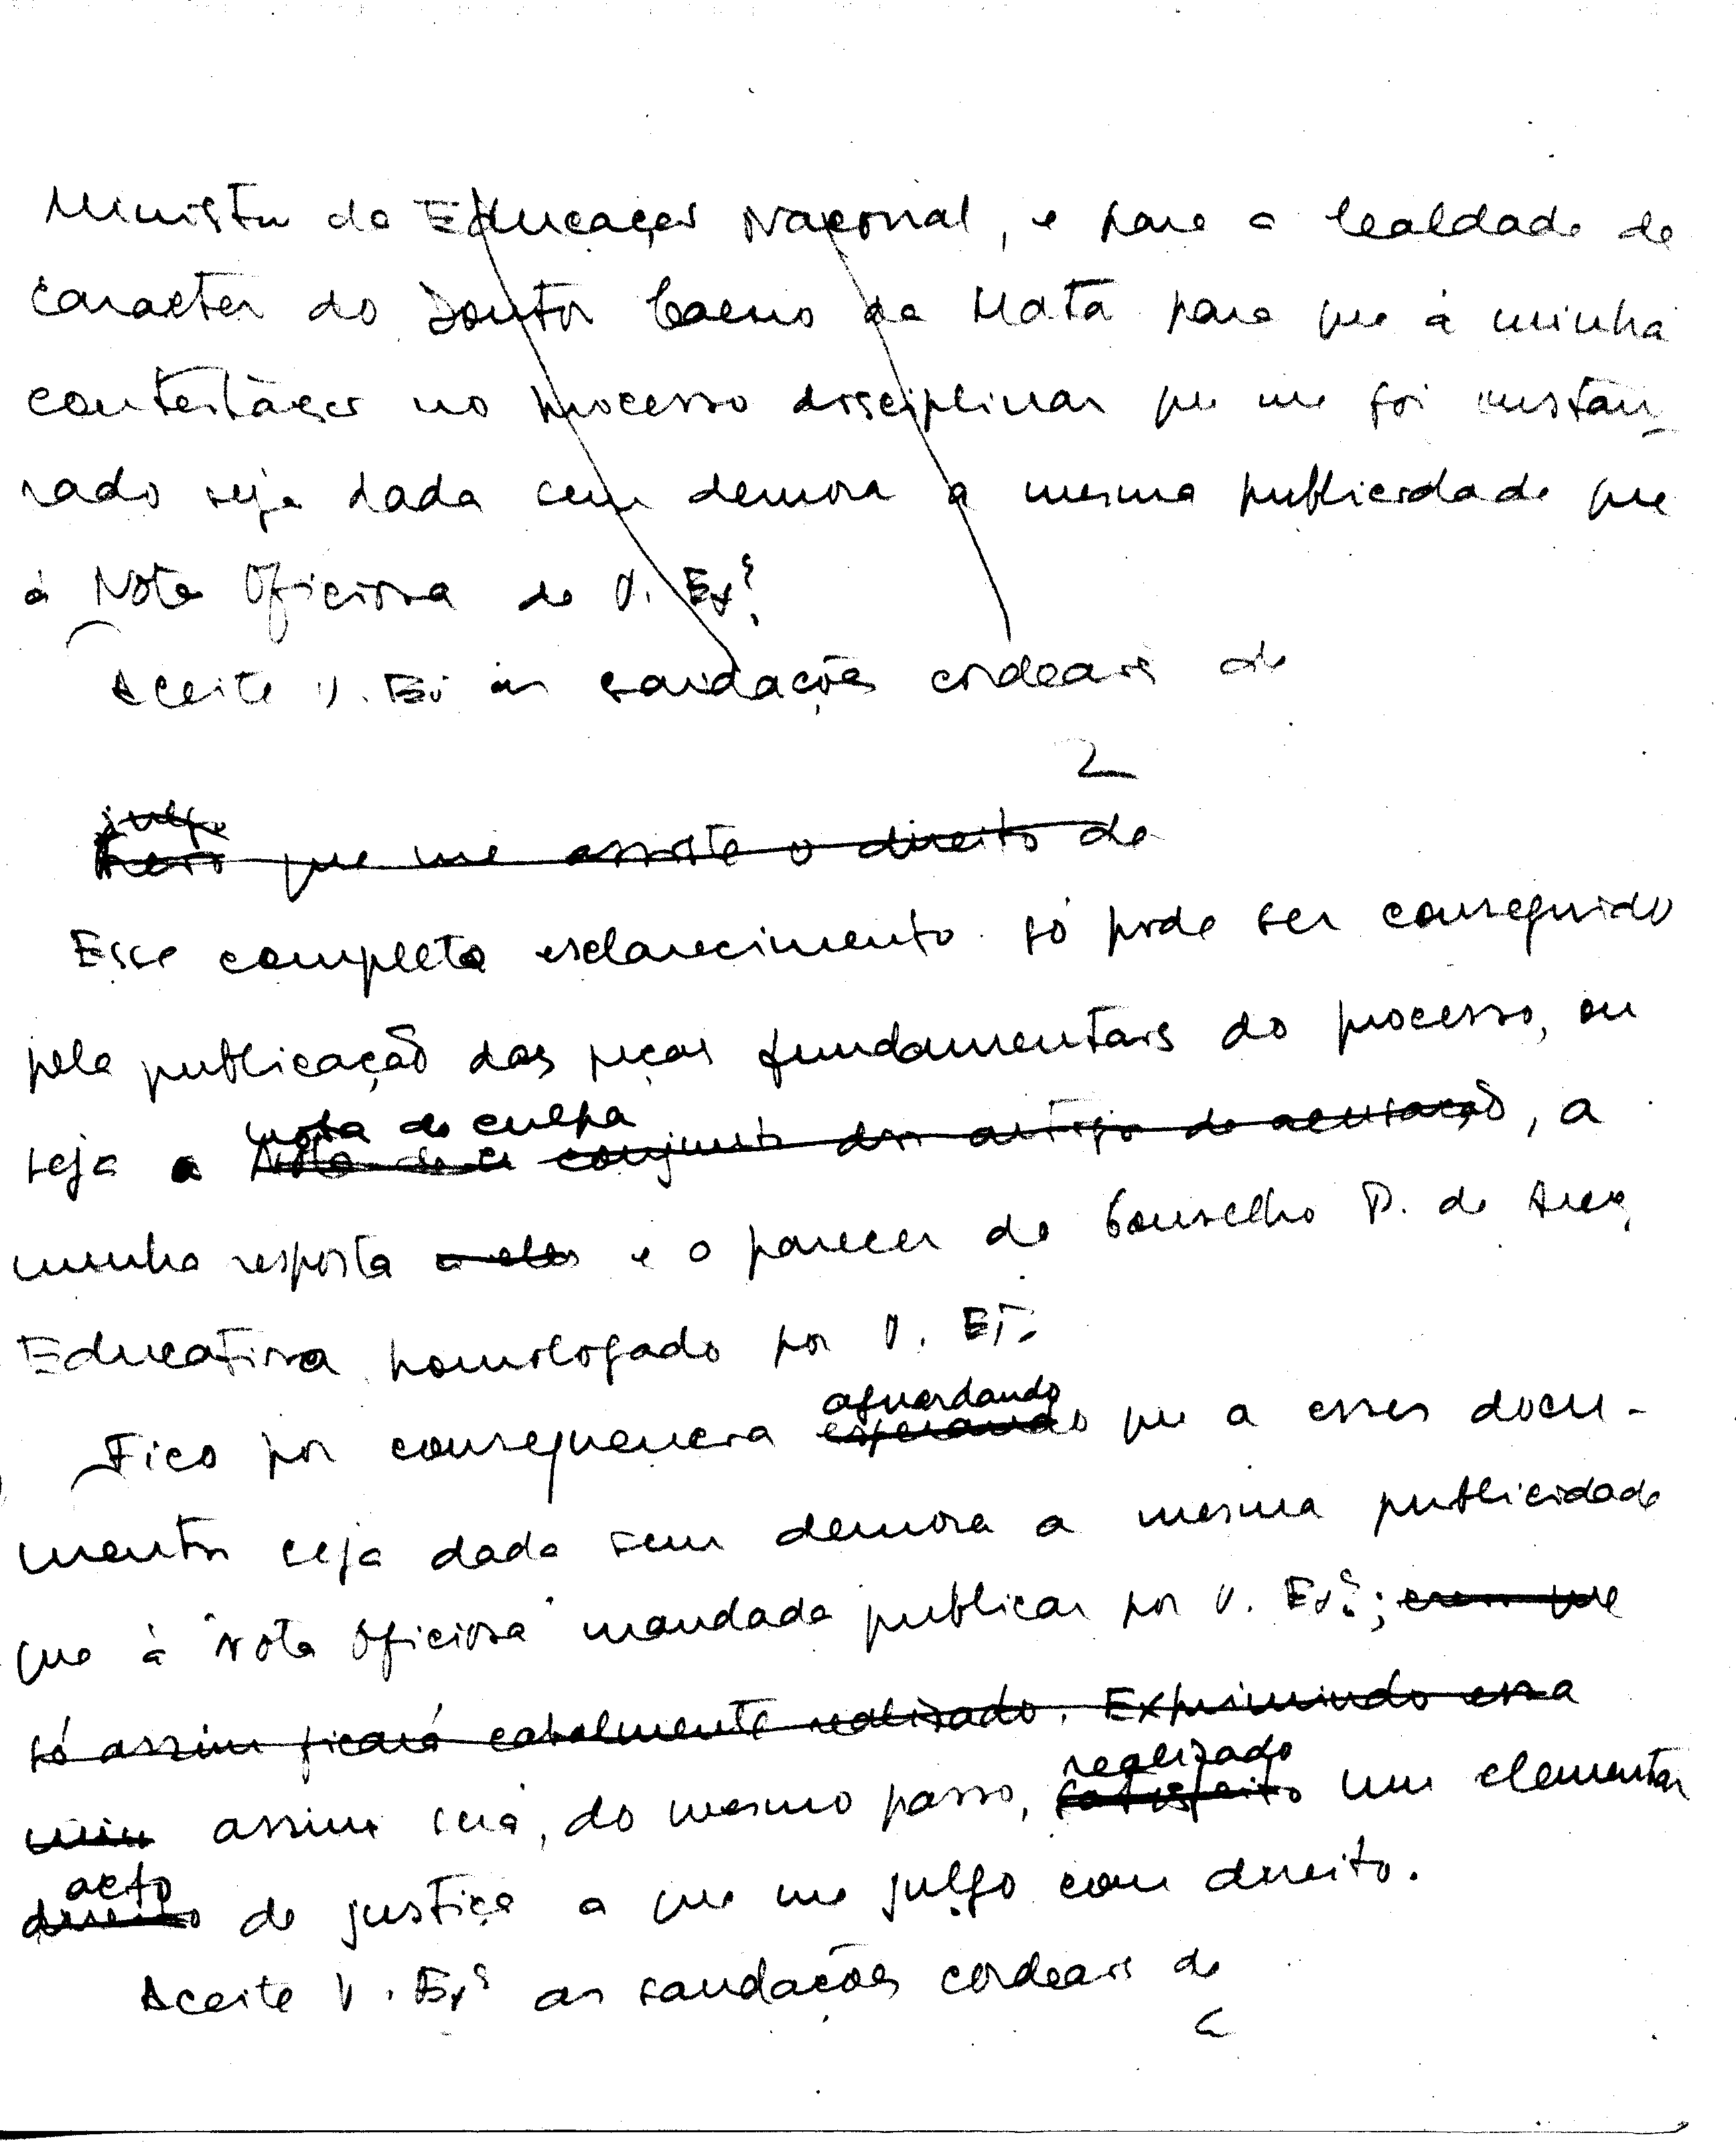 Ministro da Educação Nacional, e para a lealdade de
caracter do Doutor Caeiro da Mata para que à minha
contestação no processo disciplinar que me foi instau-
rado seja dada sem demora a mesma publicidade que
à Nota Oficiosa de V. Exª.
Aceite V. Exª as saudações cordeais de
julgo
que me assiste o direito de
Esse completo esclarecimento só pode ser conseguido
pela publicação das peças fundamentais do processo, ou
nota de culpa
seja a Nota de cu conjunto dos artigos de acusação, a
minha resposta a eles e o parecer do Conselho P. da Acç.
Educativa homologado por V. Exª.
aguardando
Fico por consequencia esperando que a esses docu-
mentos seja dada sem demora a mesma publicidade
que à "Nota Oficiosa" mandada publicar por V. Exª.; creio que
só assim ficará cabalmente realizado. Exprimindo essa
realizado
assim será, do mesmo passo, satisfeito um elementar
acto
direito de justiça a que me julgo com direito.
Aceite V. Exª as saudações cordeais de